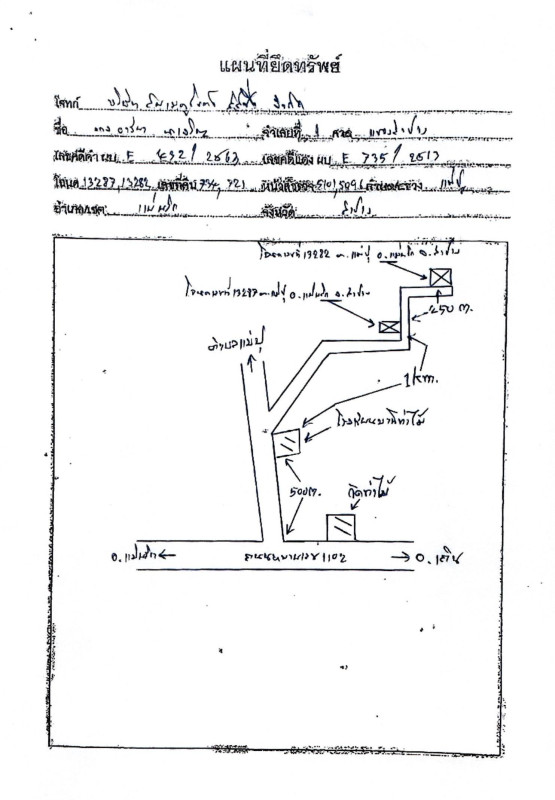 แผนที่ยึดทรัพย์
โจทก์ บริษัท จำกัด
ชื่อ จำเลยที่ 1
เลขคดีดำ ผบ. E 432 / 2563 เลขคดีแดง ผบ. E 735 / 2563
โฉนด 13287, 13282 เลขที่ดิน 734, 721 หน้าสำรวจ 5101, 5096 ตำบล/แขวง แม่ปุ
อำนาจ/เขต แม่พริก จังหวัด ลำปาง
โฉนดเลขที่ 13282 ต. แม่ปุ อ. แม่พริก จ. ลำปาง
โฉนดเลขที่ 13287 ต. แม่ปุ อ. แม่พริก จ. ลำปาง
250 ม.
ตำบลแม่ปุ
1 km.
โรงเรียนบ้านท่าไม้
500 ม.
วัดท่าไม้
อ. แม่พริก
ถนนหมายเลข 1102
อ. เถิน